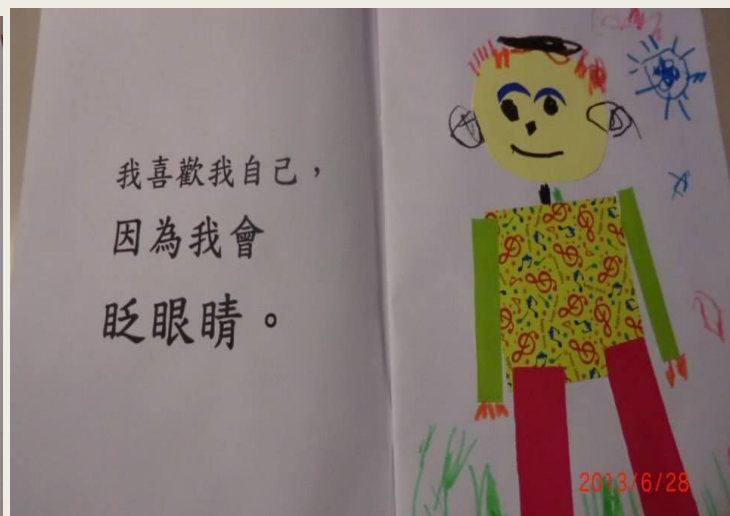 我喜歡我自己，
因為我會
眨眼睛。
2013/6/28